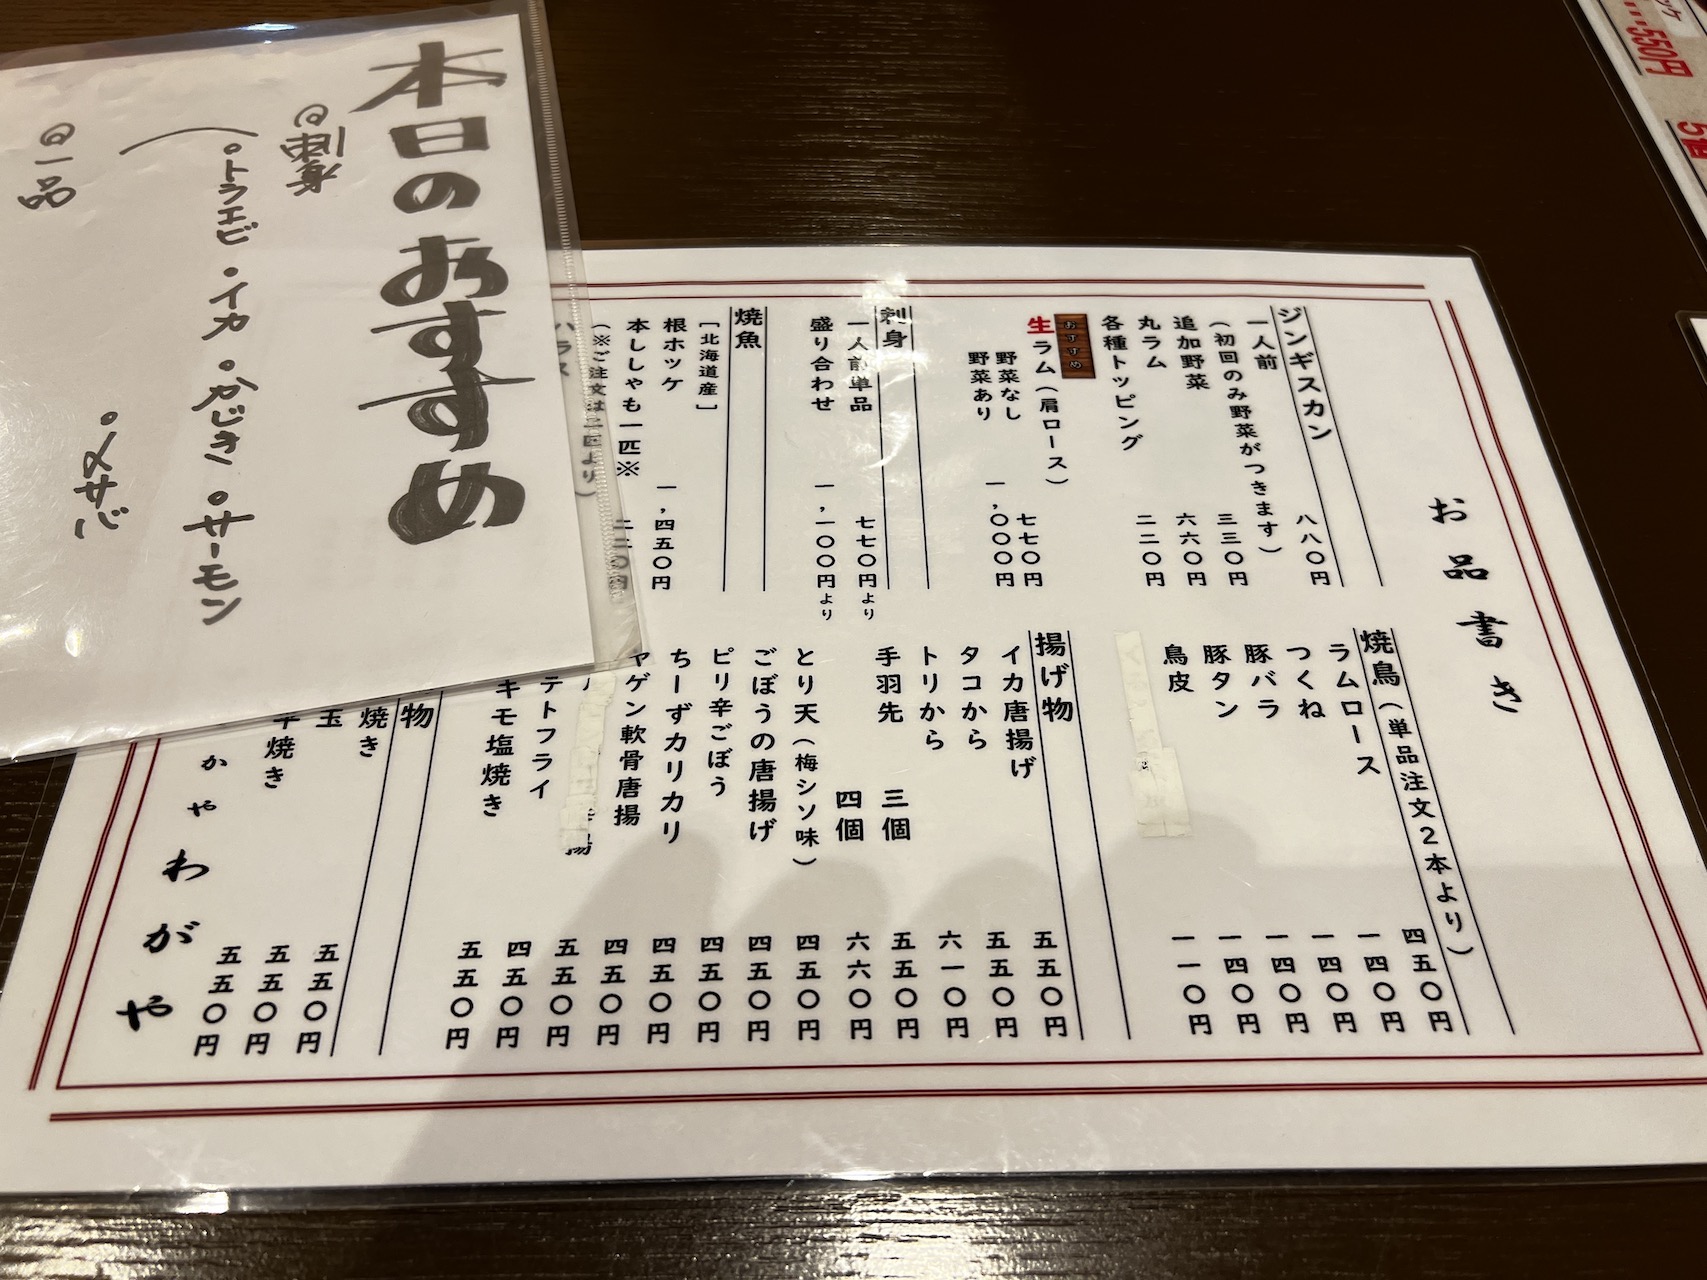 本日のおすすめ
◎刺身
・トラエビ ・イカ ・かじき ・サーモン
・〆サバ
◎一品
お品書き
ジンギスカン
一人前 八八〇円
(初回のみ野菜がつきます)
追加野菜 三三〇円
丸ラム 六六〇円
各種トッピング 二二〇円
おすすめ
生ラム(肩ロース)
野菜なし 七七〇円
野菜あり 一,〇〇〇円
刺身
一人前単品 七七〇円より
盛り合わせ 一,一〇〇円より
焼魚
[北海道産]
根ホッケ 一,四五〇円
本ししゃも一匹※ 二二〇円
(※ご注文は二匹より)
ハラス
焼鳥(単品注文2本より)
ラムロース 四五〇円
つくね 一四〇円
豚バラ 一四〇円
豚タン 一四〇円
鳥皮 一四〇円
一一〇円
揚げ物
イカ唐揚げ 五五〇円
タコから 五五〇円
トリから 六一〇円
手羽先 三個 五五〇円
四個 六六〇円
とり天(梅シソ味) 四五〇円
ごぼうの唐揚げ 四五〇円
ピリ辛ごぼう 四五〇円
ちーずカリカリ 四五〇円
ヤゲン軟骨唐揚 四五〇円
揚 五五〇円
テトフライ 四五〇円
キモ塩焼き 五五〇円
物
焼き 五五〇円
玉 五五〇円
焼き 五五〇円
かやわがや
550円